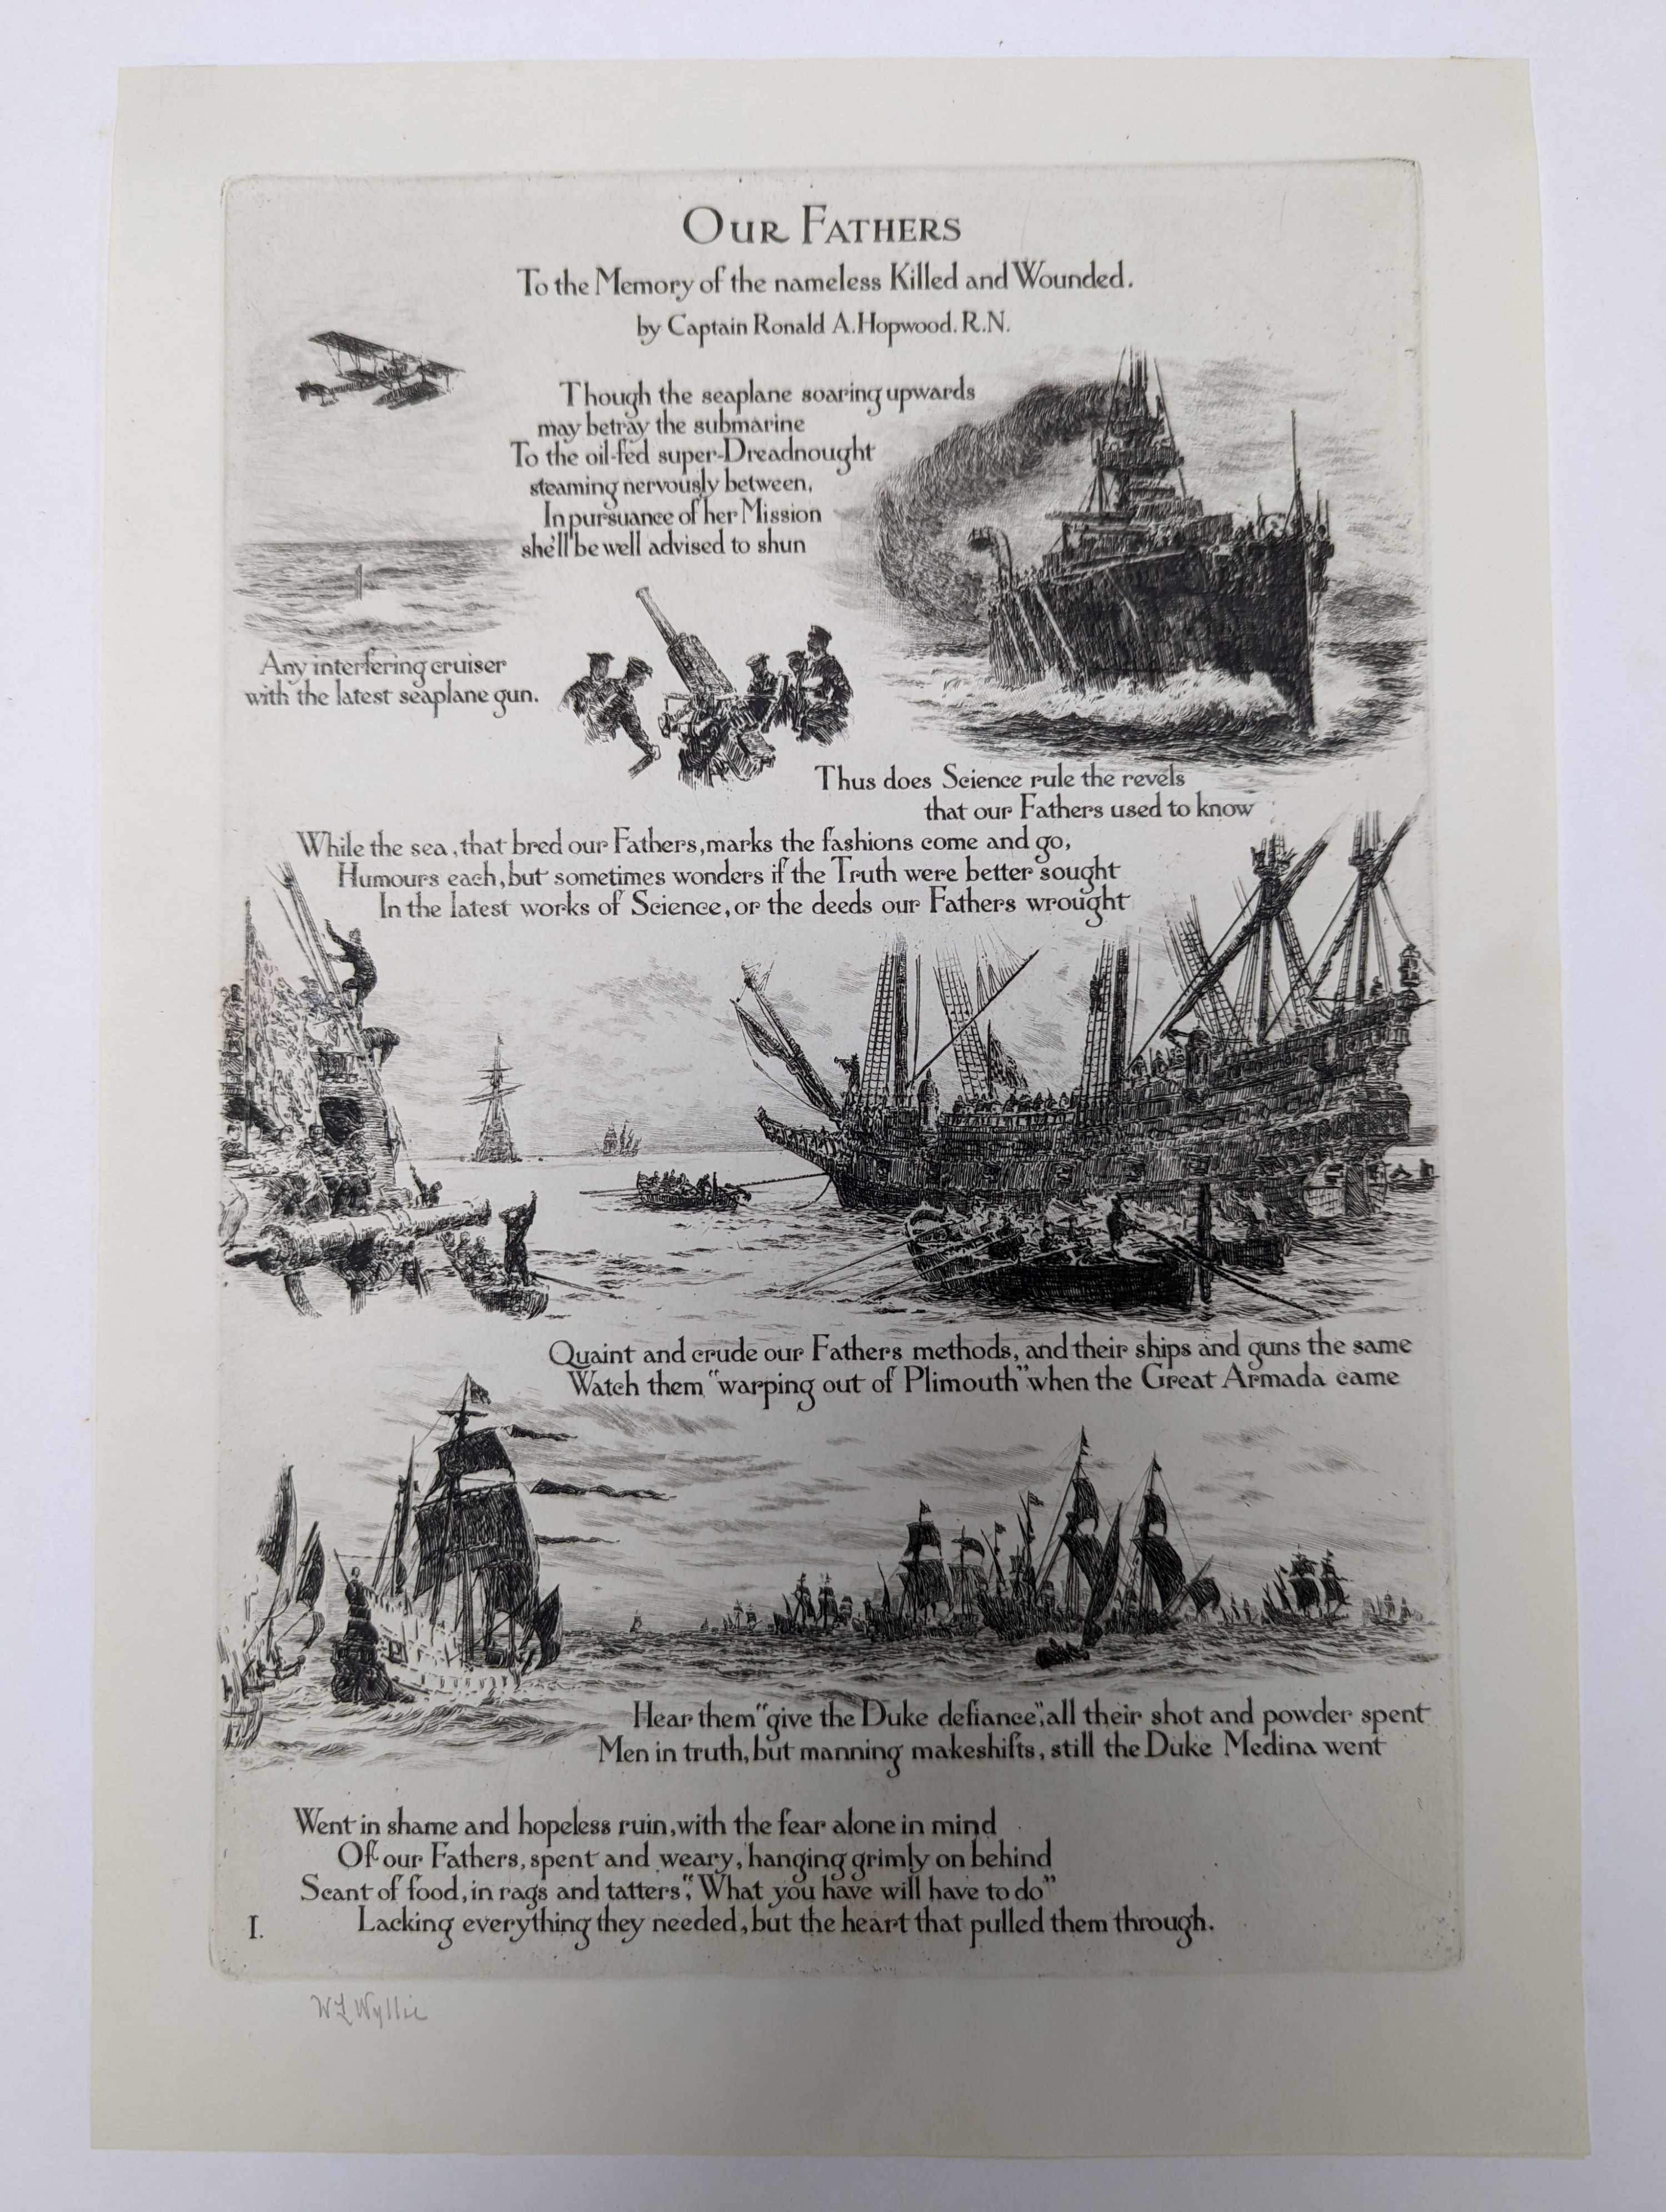 OUR FATHERS
To the Memory of the nameless Killed and Wounded.
by Captain Ronald A. Hopwood. R.N.
Though the seaplane soaring upwards
may betray the submarine
To the oil-fed super-Dreadnought
steaming nervously between,
In pursuance of her Mission
she'll be well advised to shun
Any interfering cruiser
with the latest seaplane gun.
Thus does Science rule the revels
that our Fathers used to know
While the sea, that bred our Fathers, marks the fashions come and go,
Humours each, but sometimes wonders if the Truth were better sought
In the latest works of Science, or the deeds our Fathers wrought
Quaint and crude our Fathers methods, and their ships and guns the same
Watch them "warping out of Plimouth" when the Great Armada came
Hear them "give the Duke defiance", all their shot and powder spent
Men in truth, but manning makeshifts, still the Duke Medina went
Went in shame and hopeless ruin, with the fear alone in mind
Of our Fathers, spent and weary, hanging grimly on behind
Scant of food, in rags and tatters, "What you have will have to do"
Lacking everything they needed, but the heart that pulled them through.
I.
W L Wyllie